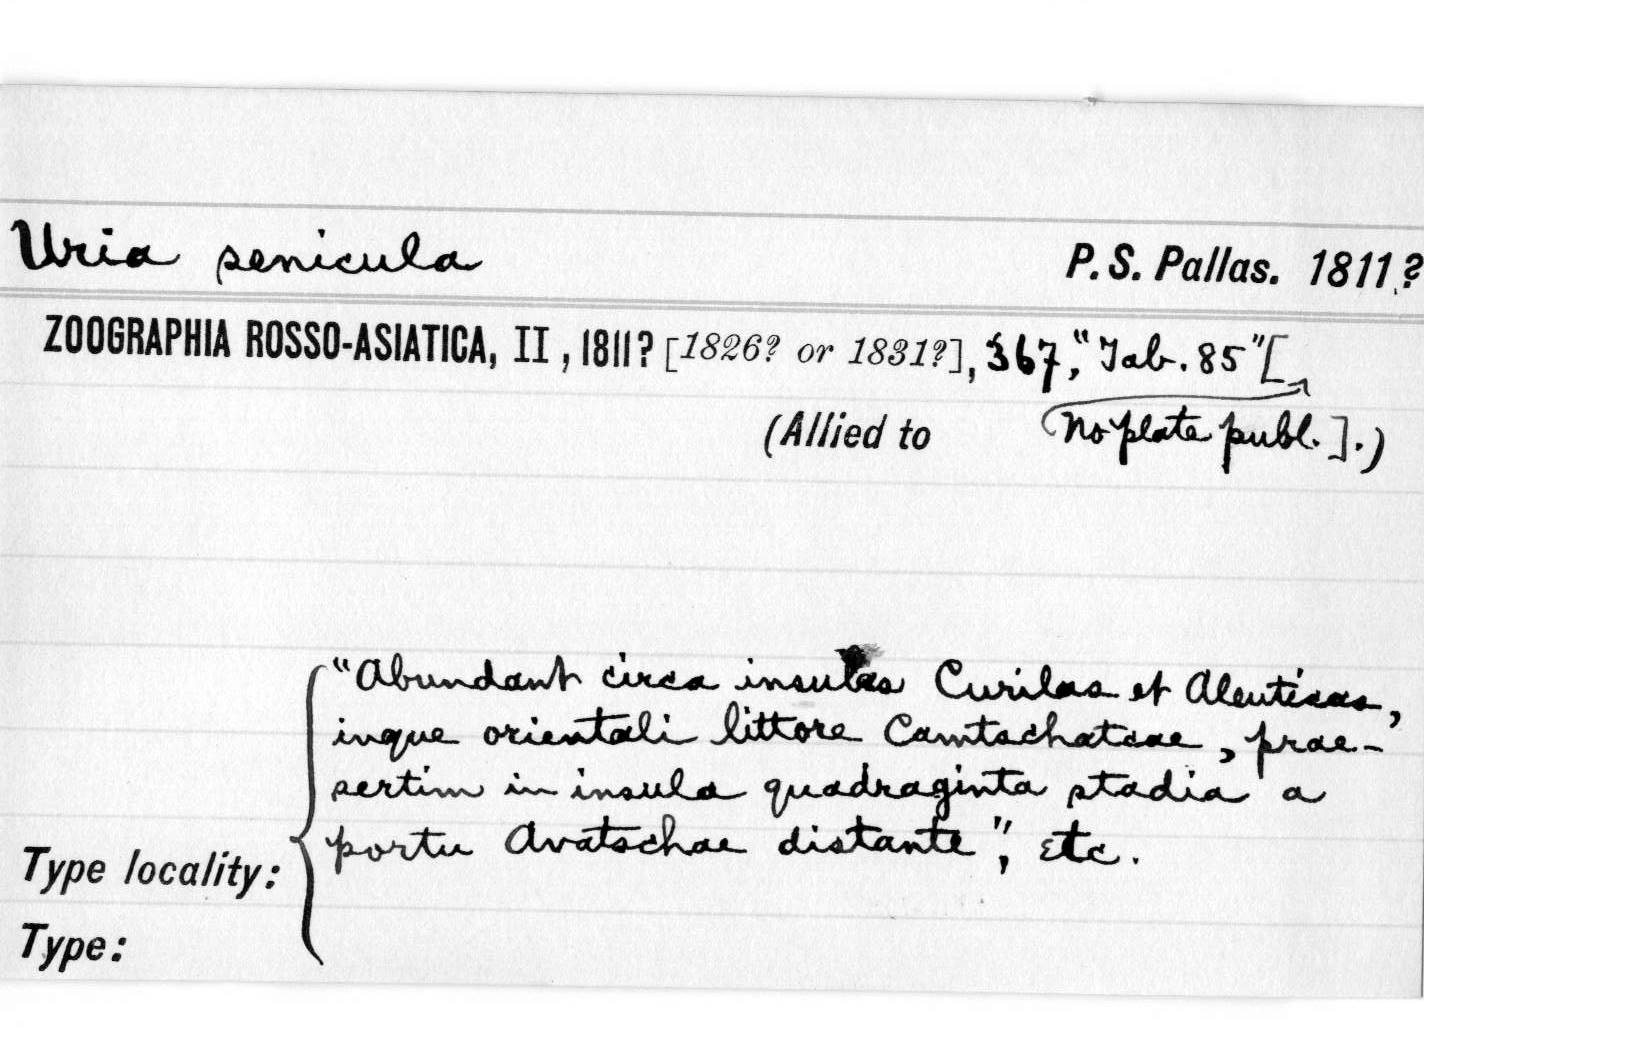 Uria senicula P. S. Pallas. 1811?
ZOOGRAPHIA ROSSO-ASIATICA, II, 1811? [1826? or 1831?], 367, "Tab. 85" [
(Allied to No plate publ.].)
"Abundant circa insulas Curilas et Aleuticas,
inque orientali littore Camtschatcae, prae-
sertim in insula quadraginta stadia a
portu Avatschae distante", etc.
Type locality:
Type: